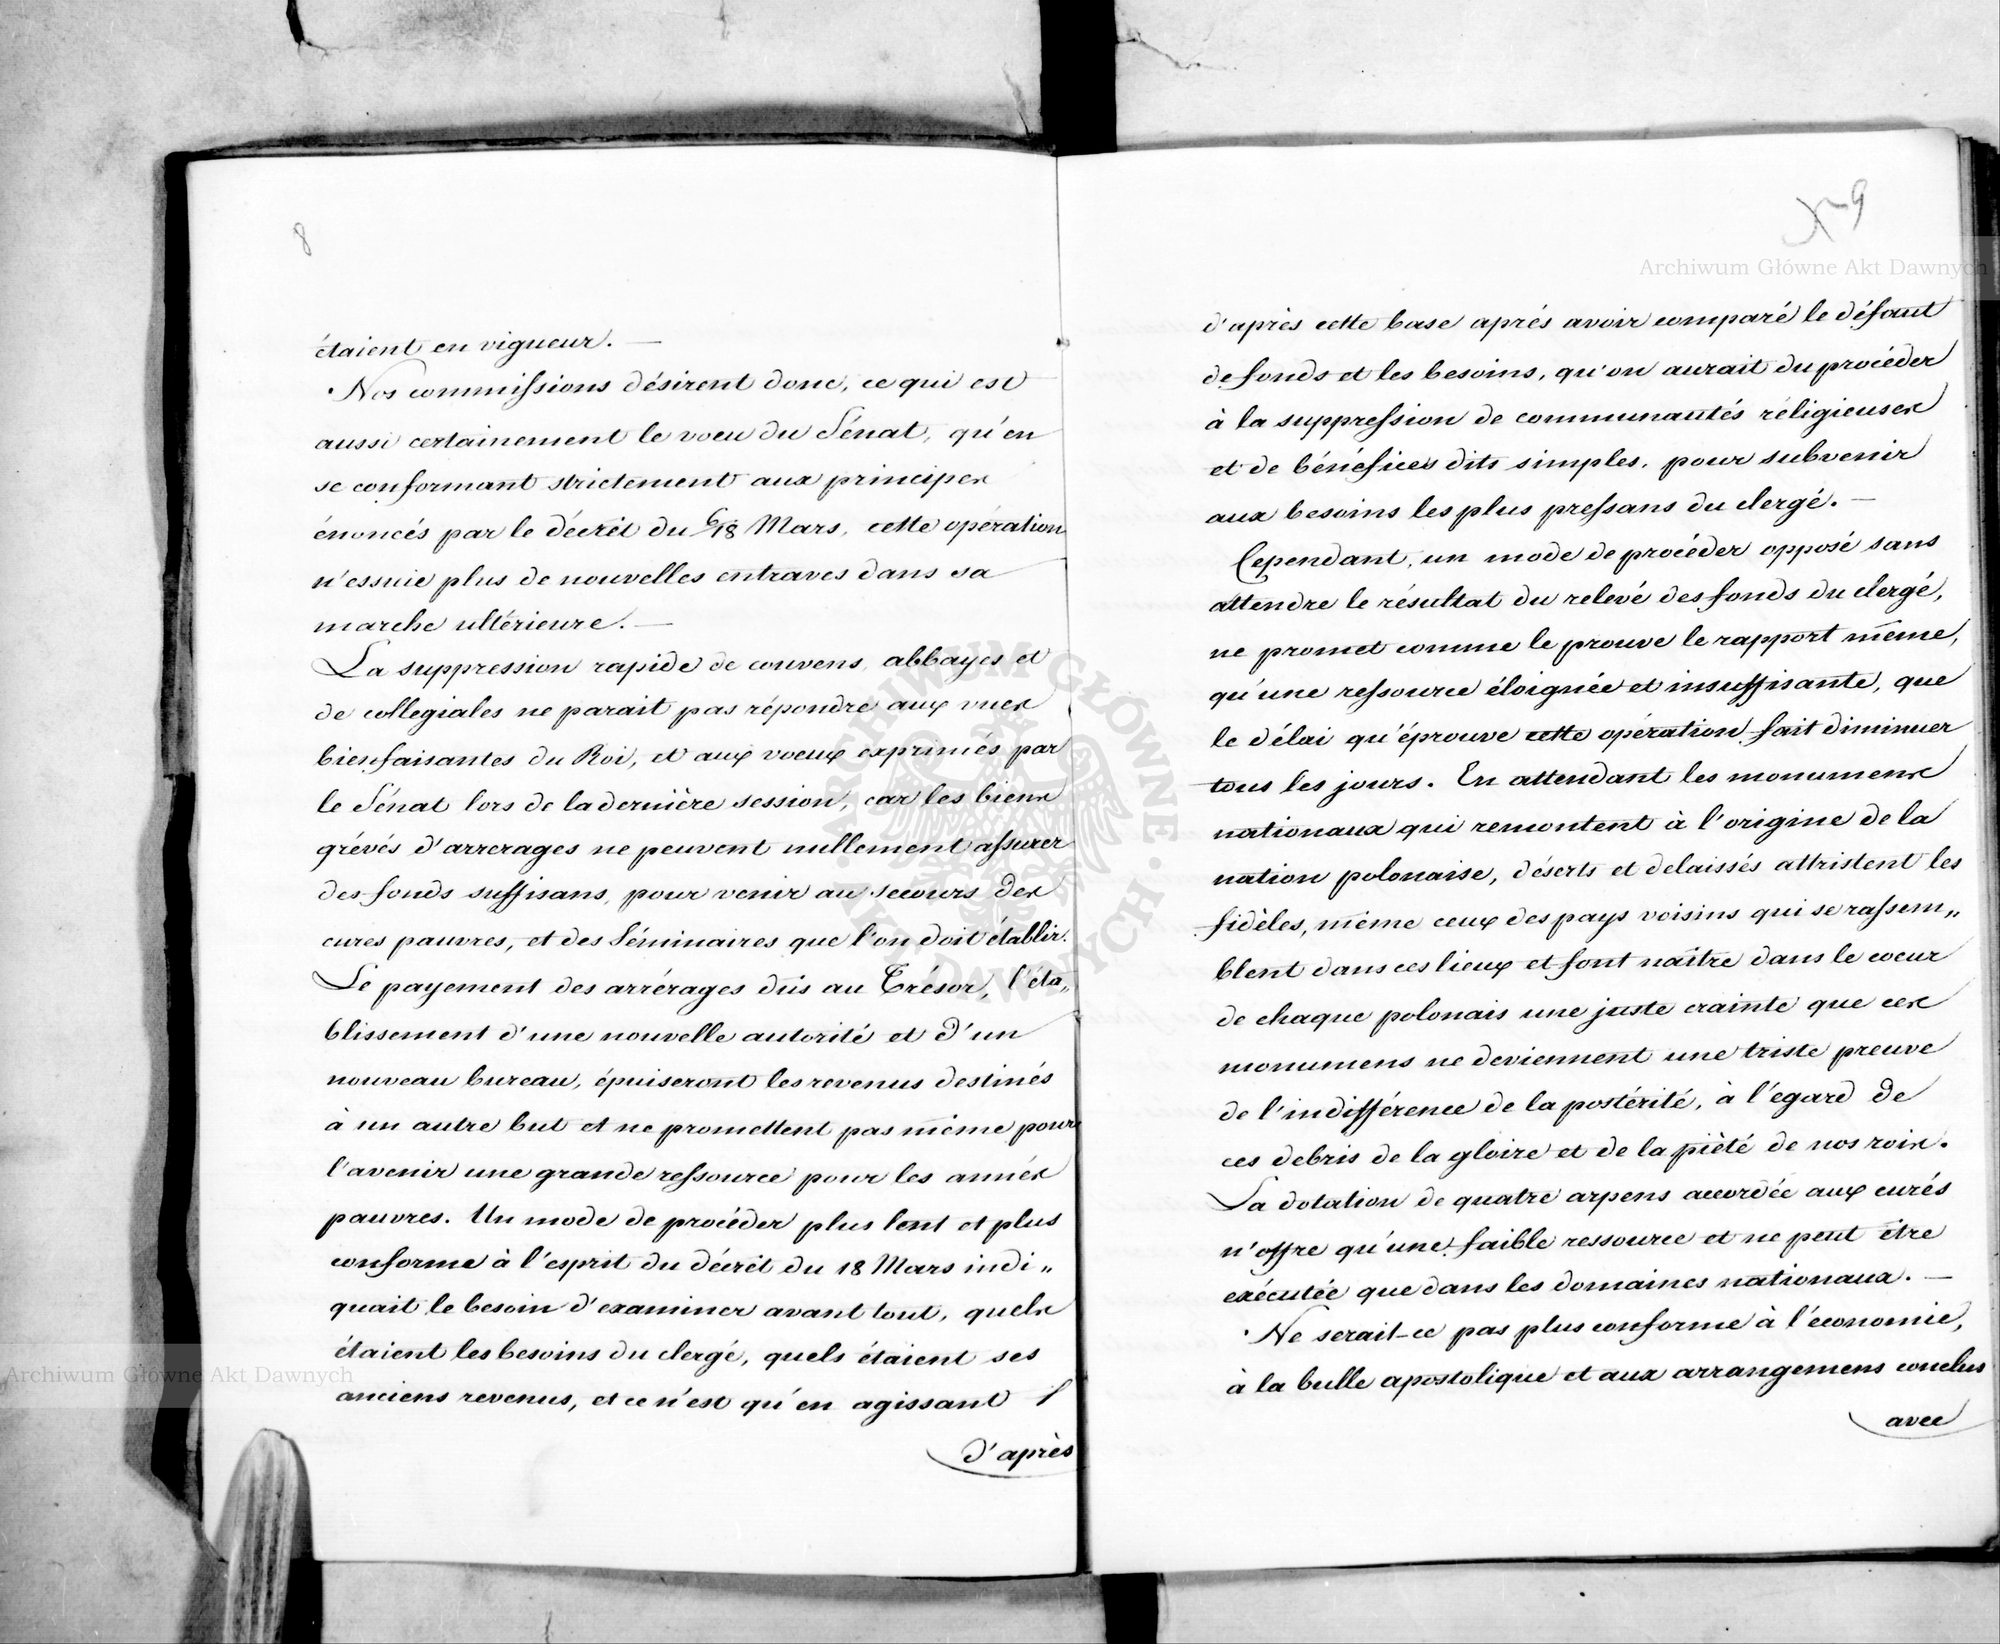 8
étaient en vigueur. —
Nos commissions désirent donc, ce qui est
aussi certainement le voeu du Sénat, qu'en
se conformant strictement aux principes
énoncés par le décrèt du 6/18 Mars, cette opération
n'essuie plus de nouvelles entraves dans sa
marche ultérieure. —
La suppression rapide de couvens, abbayes et
de collegiales ne parait pas répondre aux vues
bienfaisantes du Roi, et aux voeux exprimés par
le Sénat lors de la dernière session, car les biens
grévés d'arrerages ne peuvent nullement assurer
des fonds suffisans, pour venir au secours des
cures pauvres, et des Séminaires que l'on doit établir.
Le payement des arrérages dûs au Trésor, l'éta„
blissement d'une nouvelle autorité et d'un
nouveau bureau, épuiseront les revenus destinés
à un autre but et ne promettent pas même pour
l'avenir une grande ressource pour les années
pauvres. Un mode de procéder plus lent et plus
conforme à l'esprit du décrèt du 18 Mars indi„
quait le besoin d'examiner avant tout, quels
étaient les besoins du clergé, quels étaient ses
anciens revenus, et ce n'est qu'en agissant
d'après
9
d'après cette base aprés avoir comparé le défaut
de fonds et les besoins, qu'on aurait du procéder
à la suppression de communautés réligieuses
et de bénéfices dits simples, pour subvenir
aux besoins les plus pressans du clergé. —
Cependant, un mode de procéder opposé sans
attendre le résultat du relevé des fonds du clergé,
ne promet comme le prouve le rapport même,
qu'une ressource éloignée et insuffisante, que
le délai qu'éprouve cette opération fait diminuer
tous les jours. En attendant les monumens
nationaux qui remontent à l'origine de la
nation polonaise, déserts et delaissés attristent les
fidèles, même ceux des pays voisins qui se rassem„
blent dans ces lieux et font naître dans le coeur
de chaque polonais une juste crainte que ces
monumens ne deviennent une triste preuve
de l'indifférence de la postérité, à l'égard de
ces debris de la gloire et de la piété de nos rois.
La dotation de quatre arpens accordée aux curés
n'offre qu'une faible ressource et ne peut être
exécutée que dans les domaines nationaux. —
Ne serait-ce pas plus conforme à l'économie,
à la bulle apostolique et aux arrangemens conclus
avec
Archiwum Główne Akt Dawnych
Archiwum Główne Akt Dawnych
ARCHIWUM GŁÓWNE AKT DAWNYCH